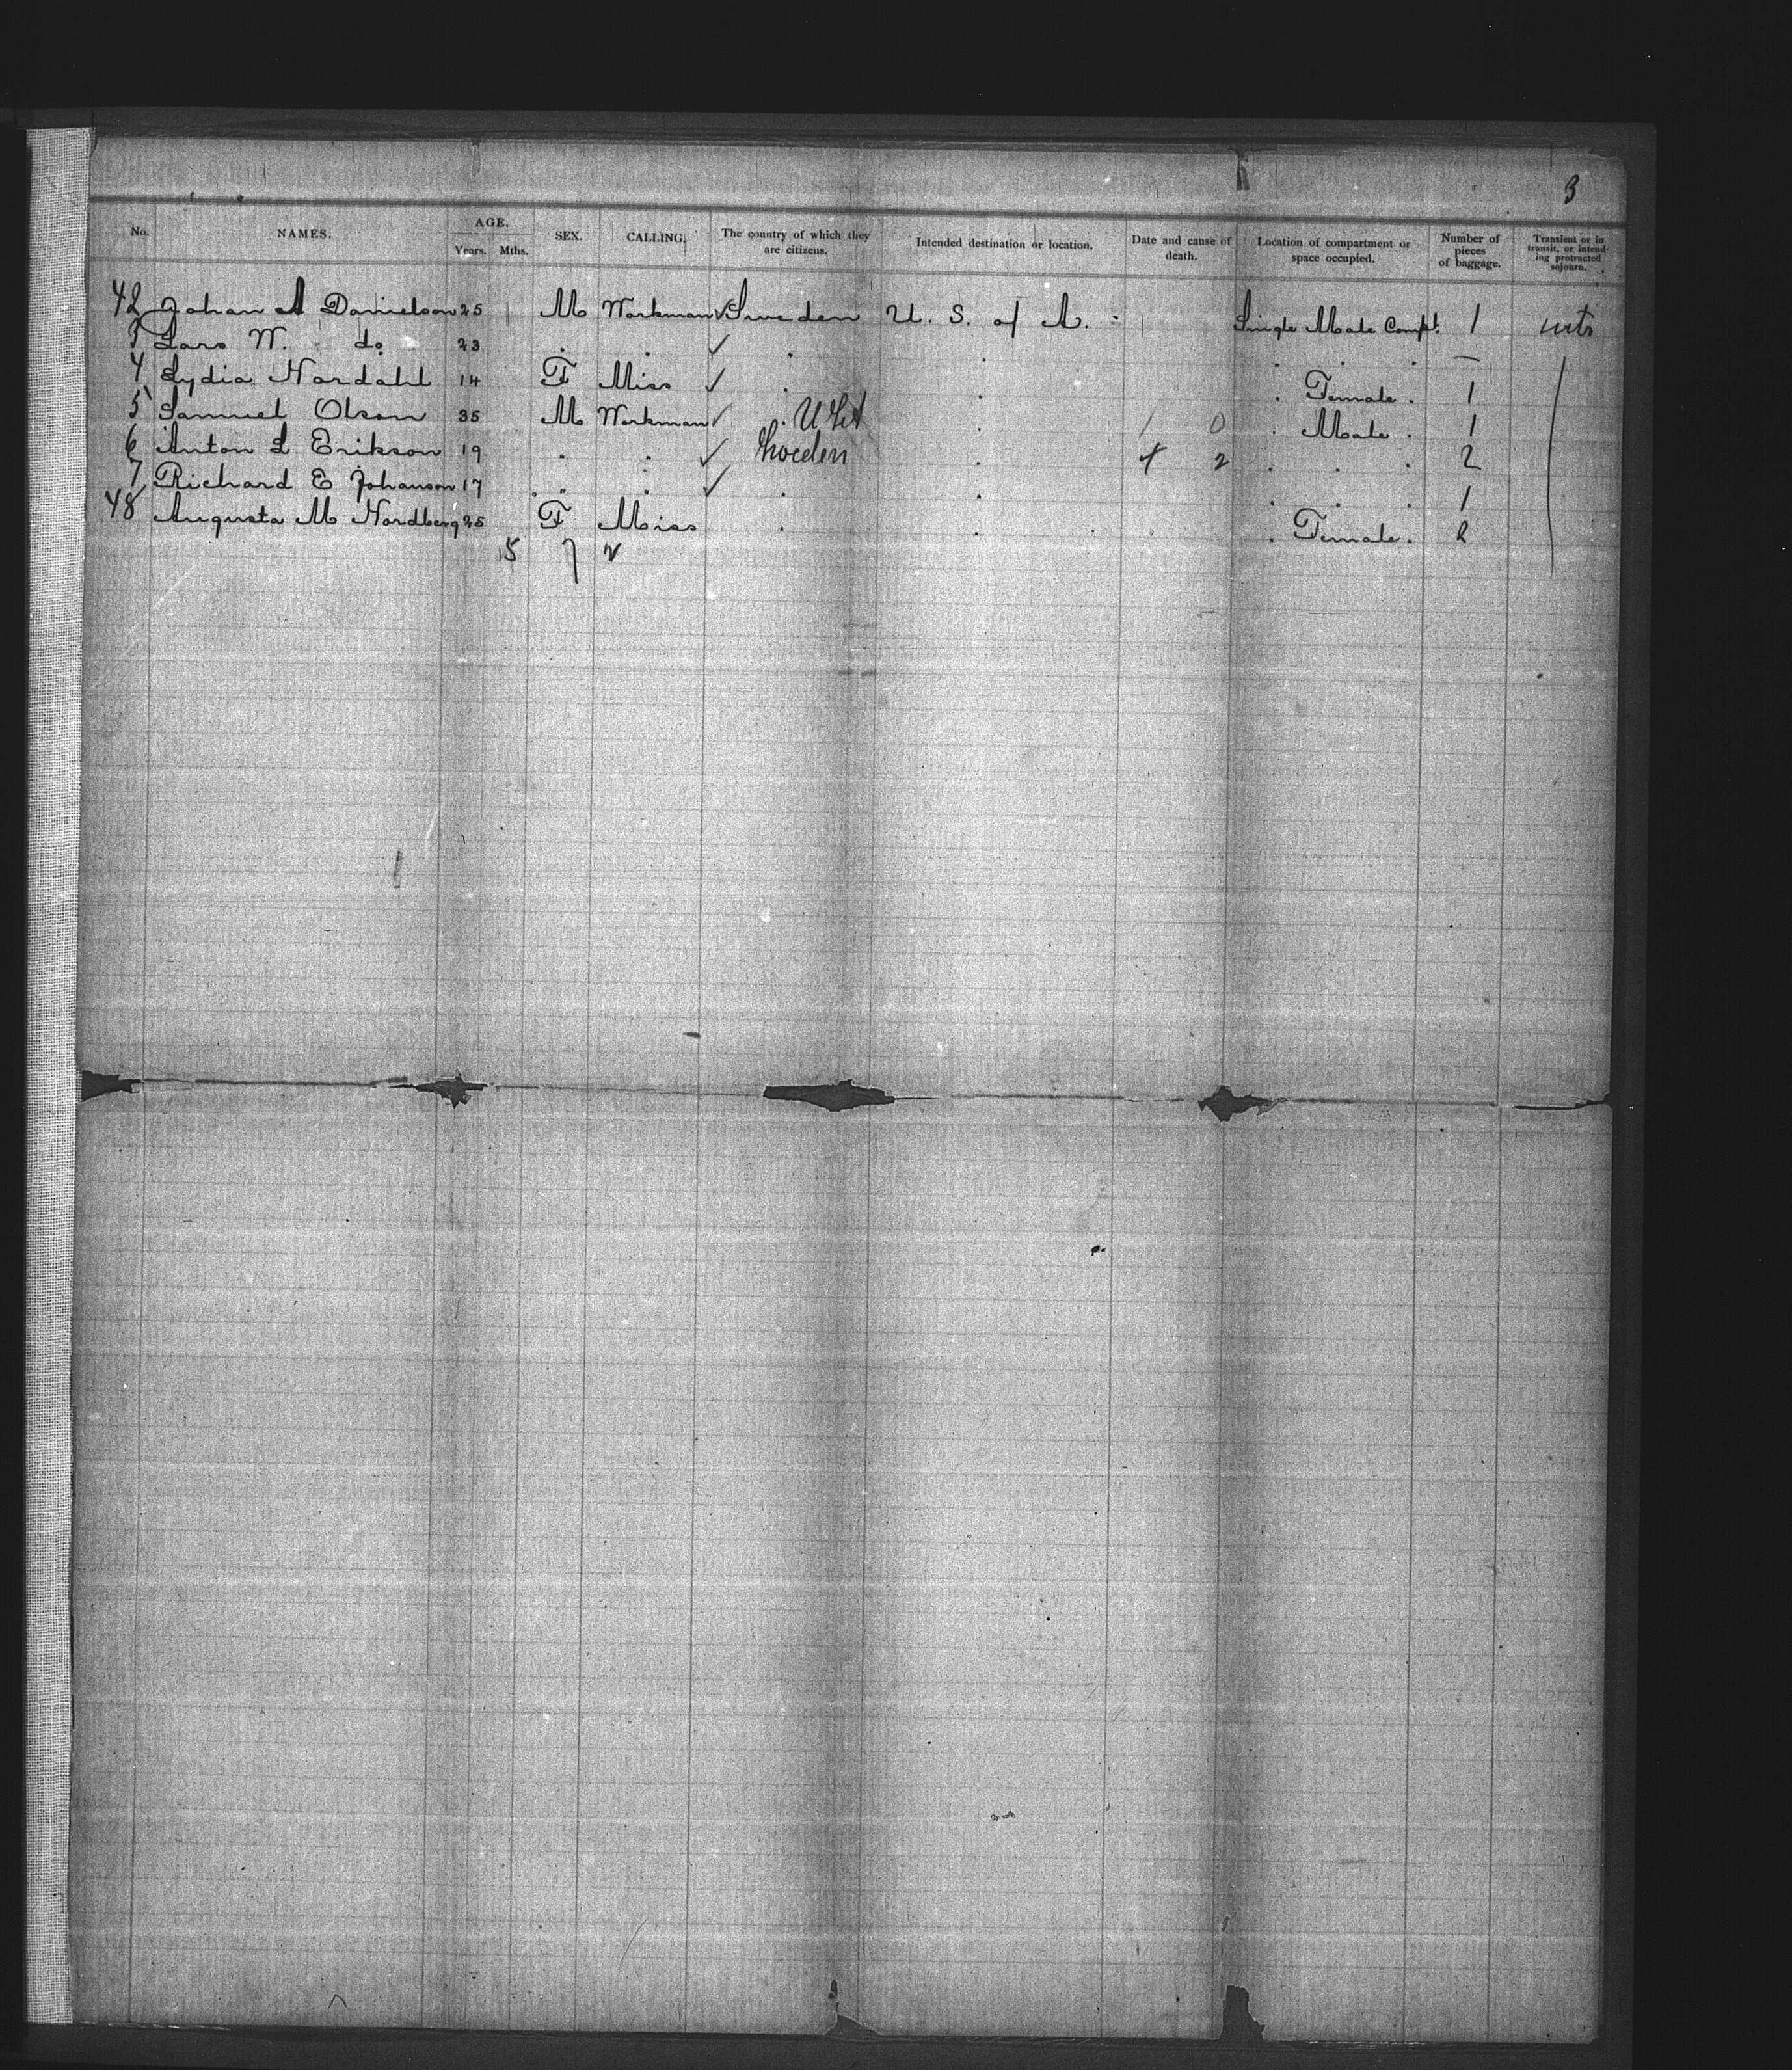 3
No. NAMES. AGE. Years. Mths. SEX. CALLING. The country of which they are citizens. Intended destination or location. Date and cause of death. Location of compartment or space occupied. Number of pieces of baggage. Transient or in transit, or intending protracted sojourn.
42 Johan A Danielson 25 M Workman ✓ Sweden U. S. of A. Single Male Compt. 1
3 Lars W. do 23 " " ✓ " " " " " —
4 Lydia Nordahl 14 F Miss ✓ " " " Female " 1
5 Samuel Olson 35 M Workman ✓ " " 1 0 " Male " 1
6 Anton L Erikson 19 " " ✓ Sweden " 4 2 " " " 2
7 Richard E Johanson 17 " " ✓ " " " " " 1
48 Augusta M Nordberg 25 F Miss " " " Female " 2
5 7 2